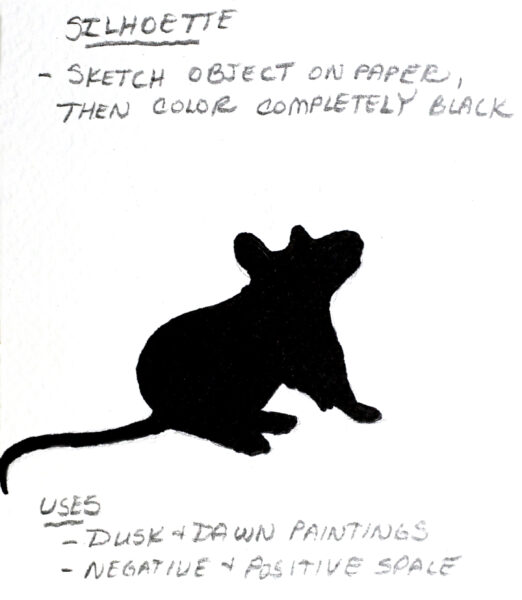 SILHOETTE
- SKETCH OBJECT ON PAPER,
THEN COLOR COMPLETELY BLACK
USES
- DUSK & DAWN PAINTINGS
- NEGATIVE & POSITIVE SPACE